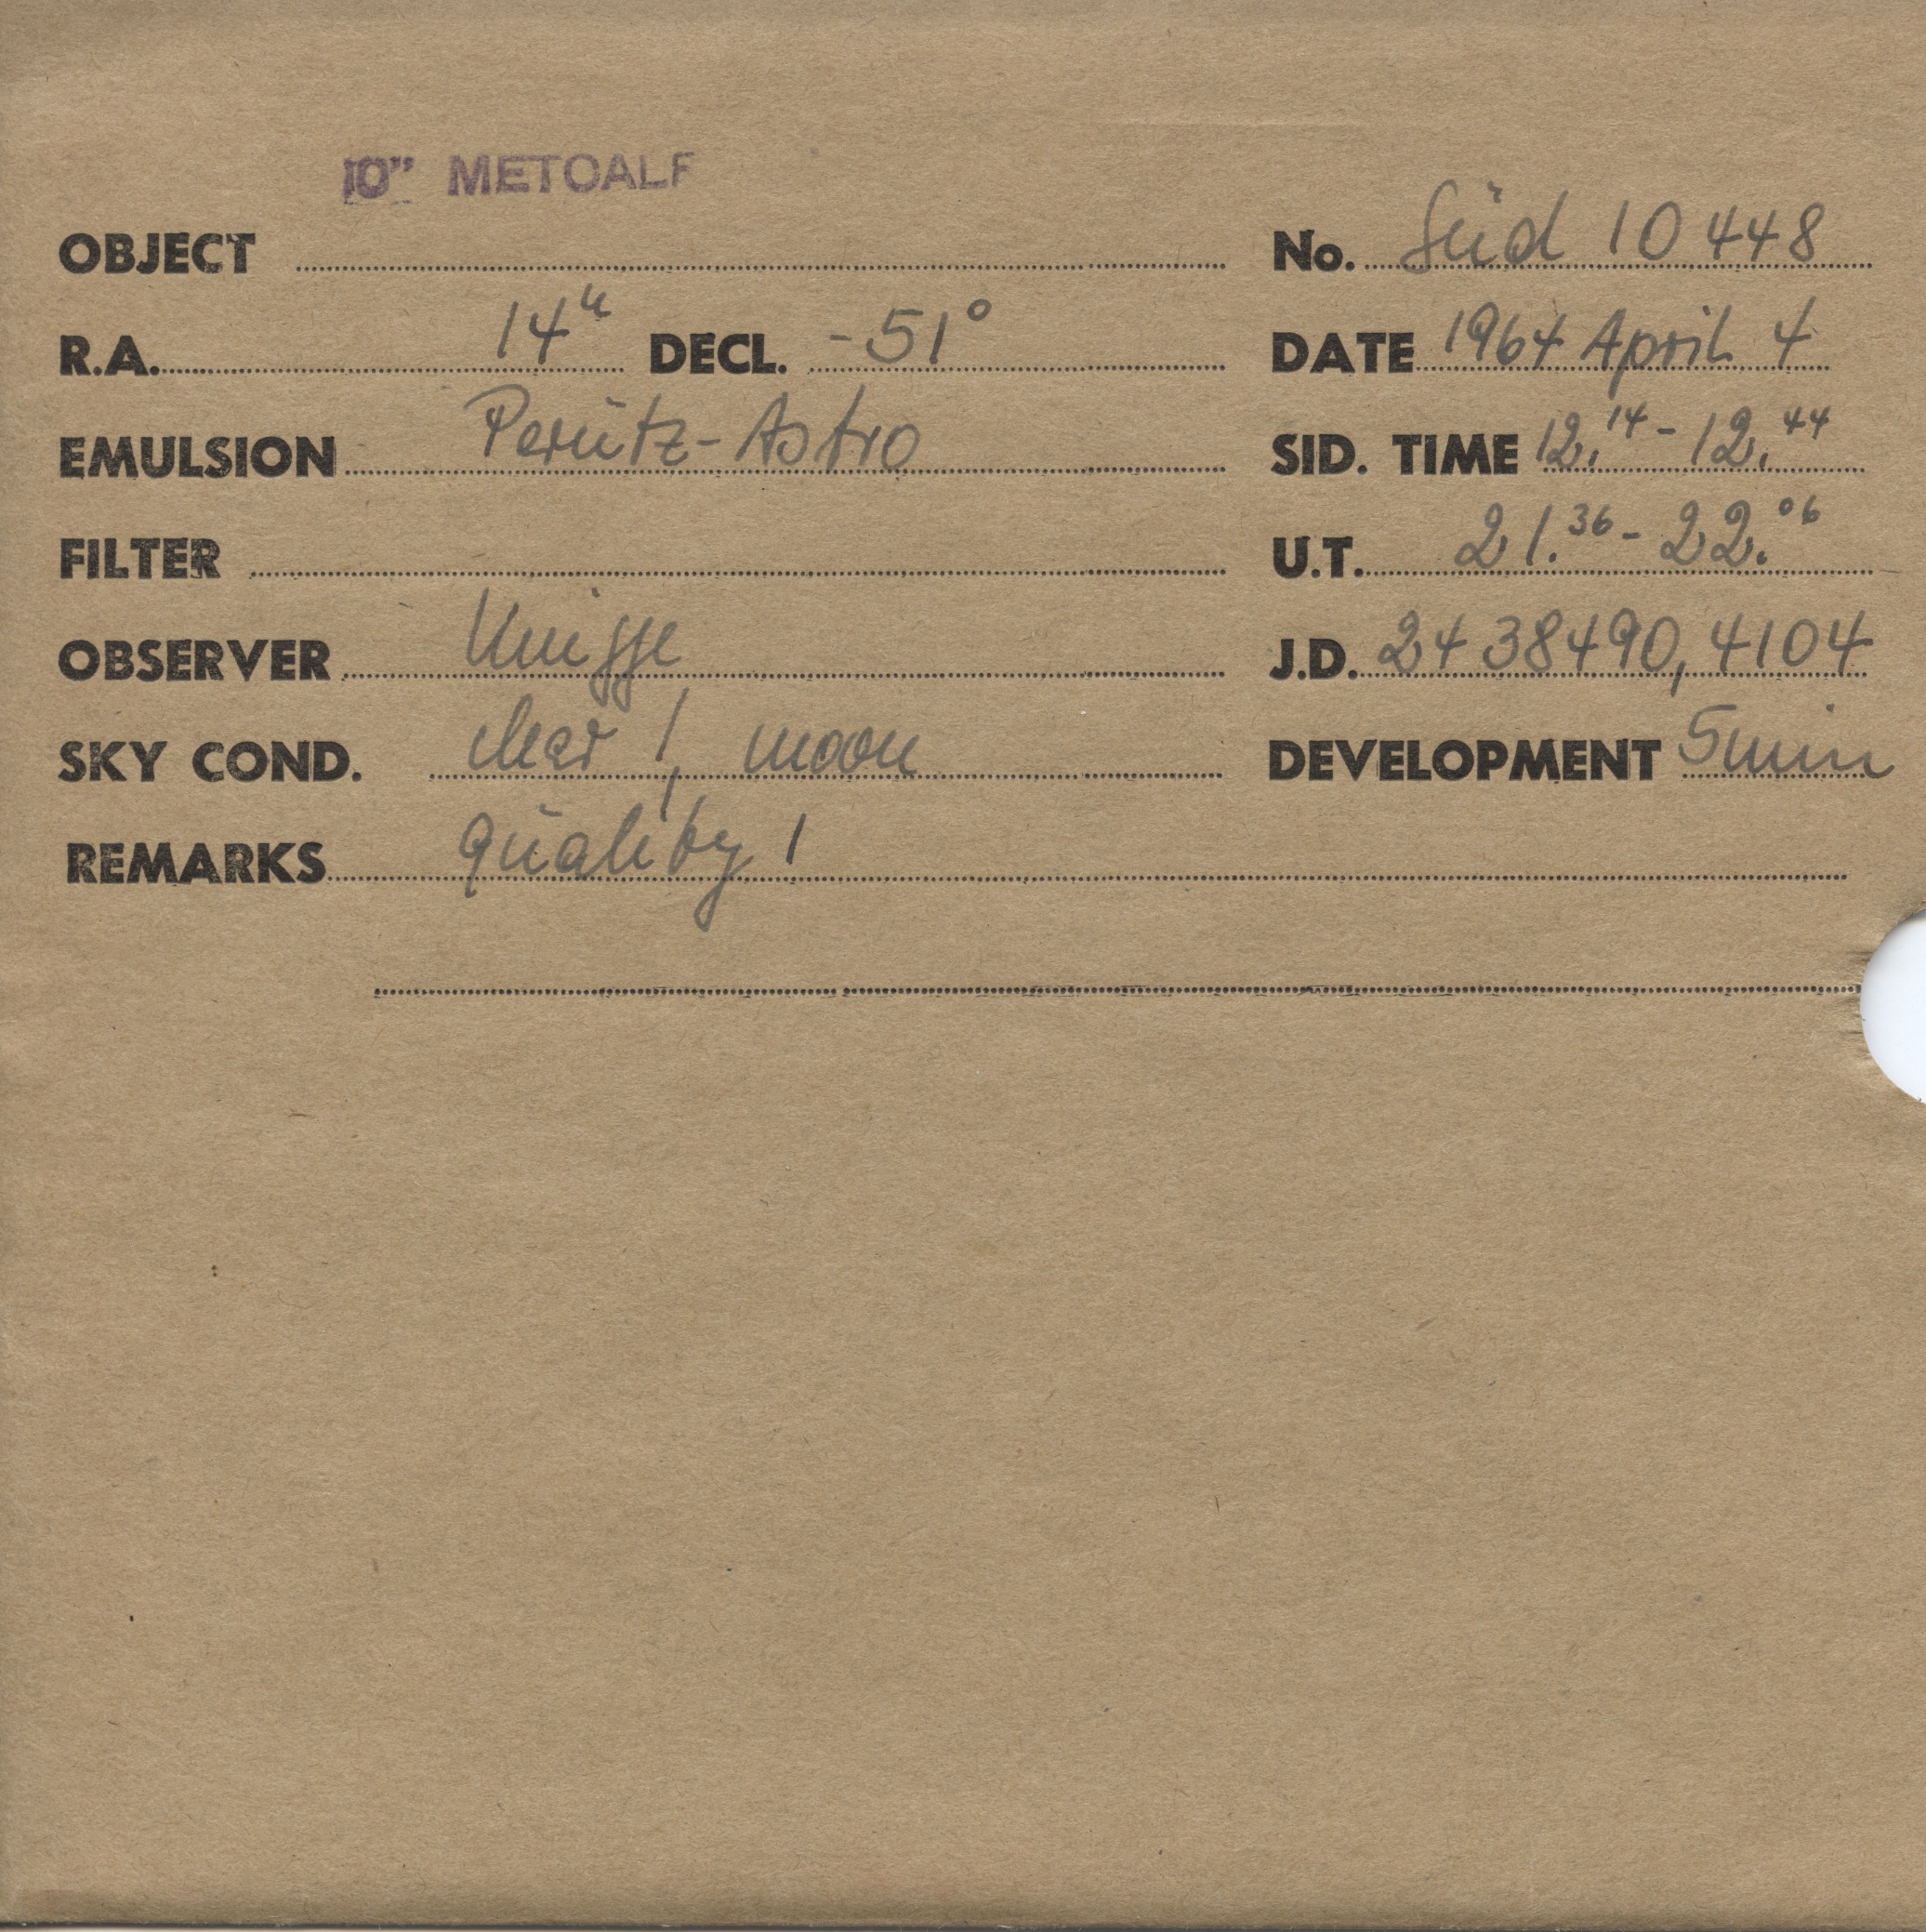 10" METCALF
OBJECT No. Süd 10448
R.A. 14h DECL. -51° DATE 1964 April 4
EMULSION Perutz-Astro SID. TIME 12.14 - 12.44
FILTER U.T. 21.36 - 22.06
OBSERVER Knigge J.D. 2438490,4104
SKY COND. clear 1, moon DEVELOPMENT 5min
REMARKS quality 1